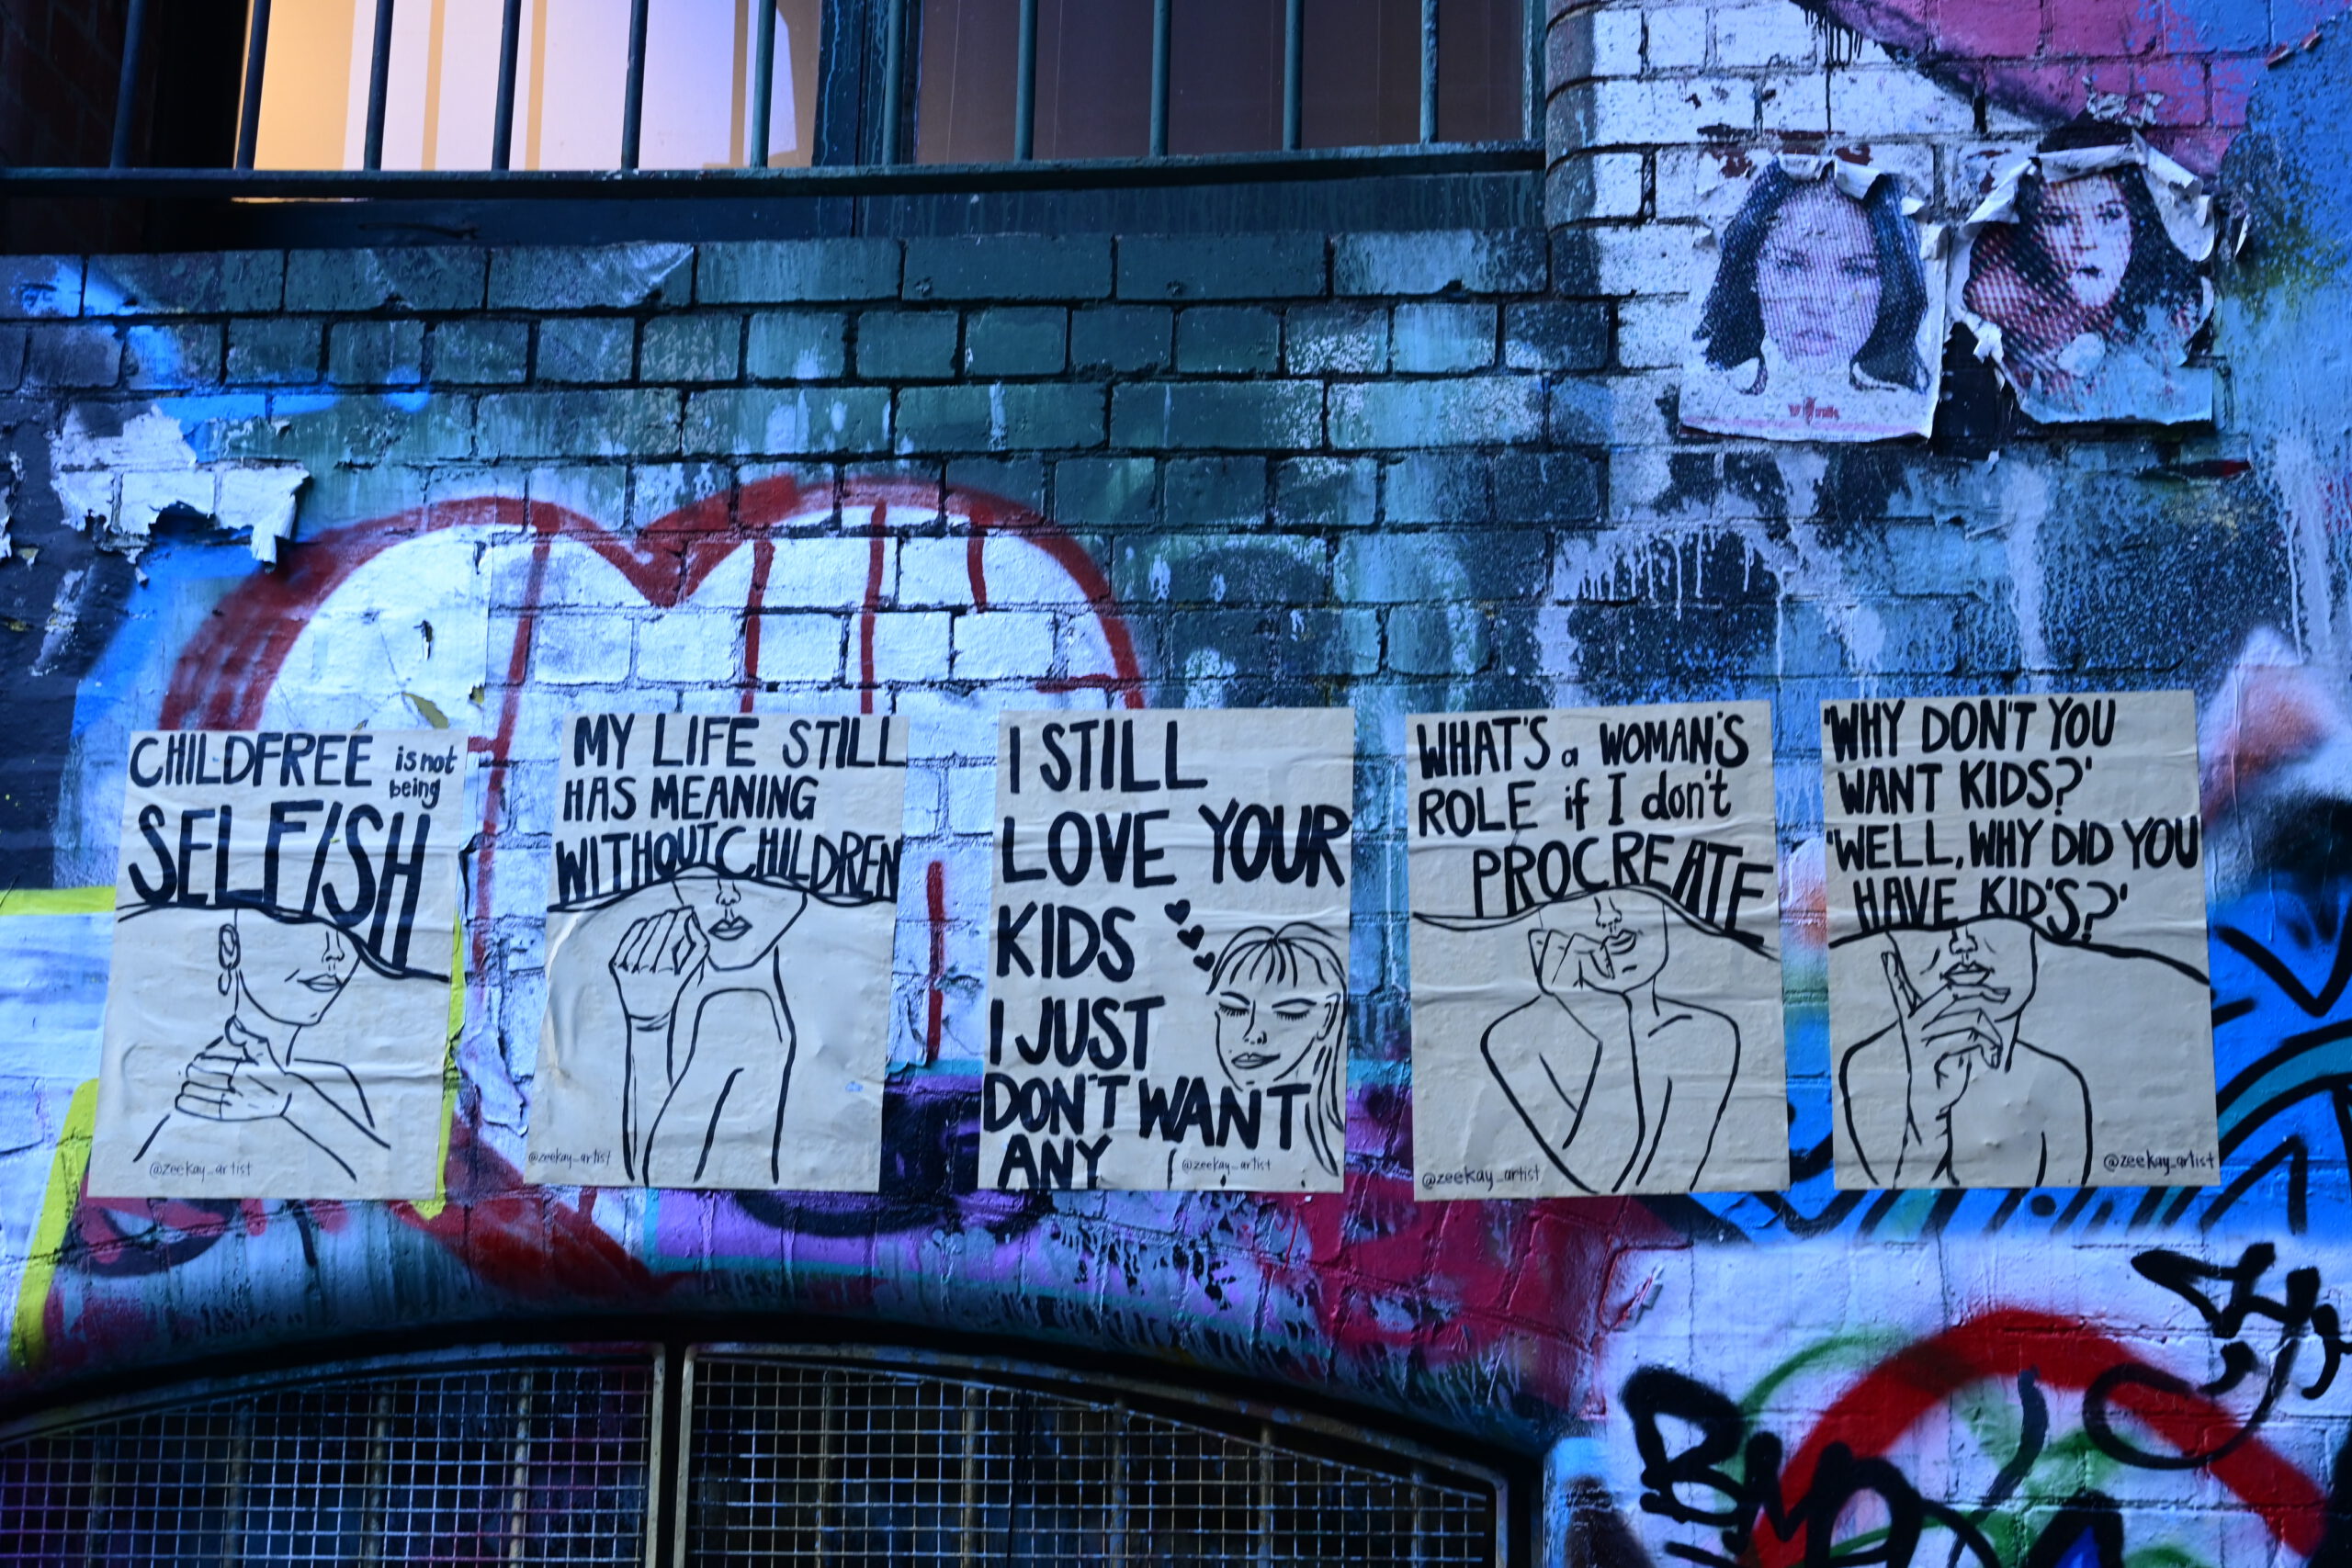 CHILDFREE is not
being
SELFISH
@zeekay_artist
MY LIFE STILL
HAS MEANING
WITHOUT CHILDREN
@zeekay_artist
I STILL
LOVE YOUR
KIDS
I JUST
DON'T WANT
ANY
@zeekay_artist
WHAT'S a WOMAN'S
ROLE if I don't
PROCREATE
@zeekay_artist
'WHY DON'T YOU
WANT KIDS?'
'WELL, WHY DID YOU
HAVE KID'S?'
@zeekay_artist